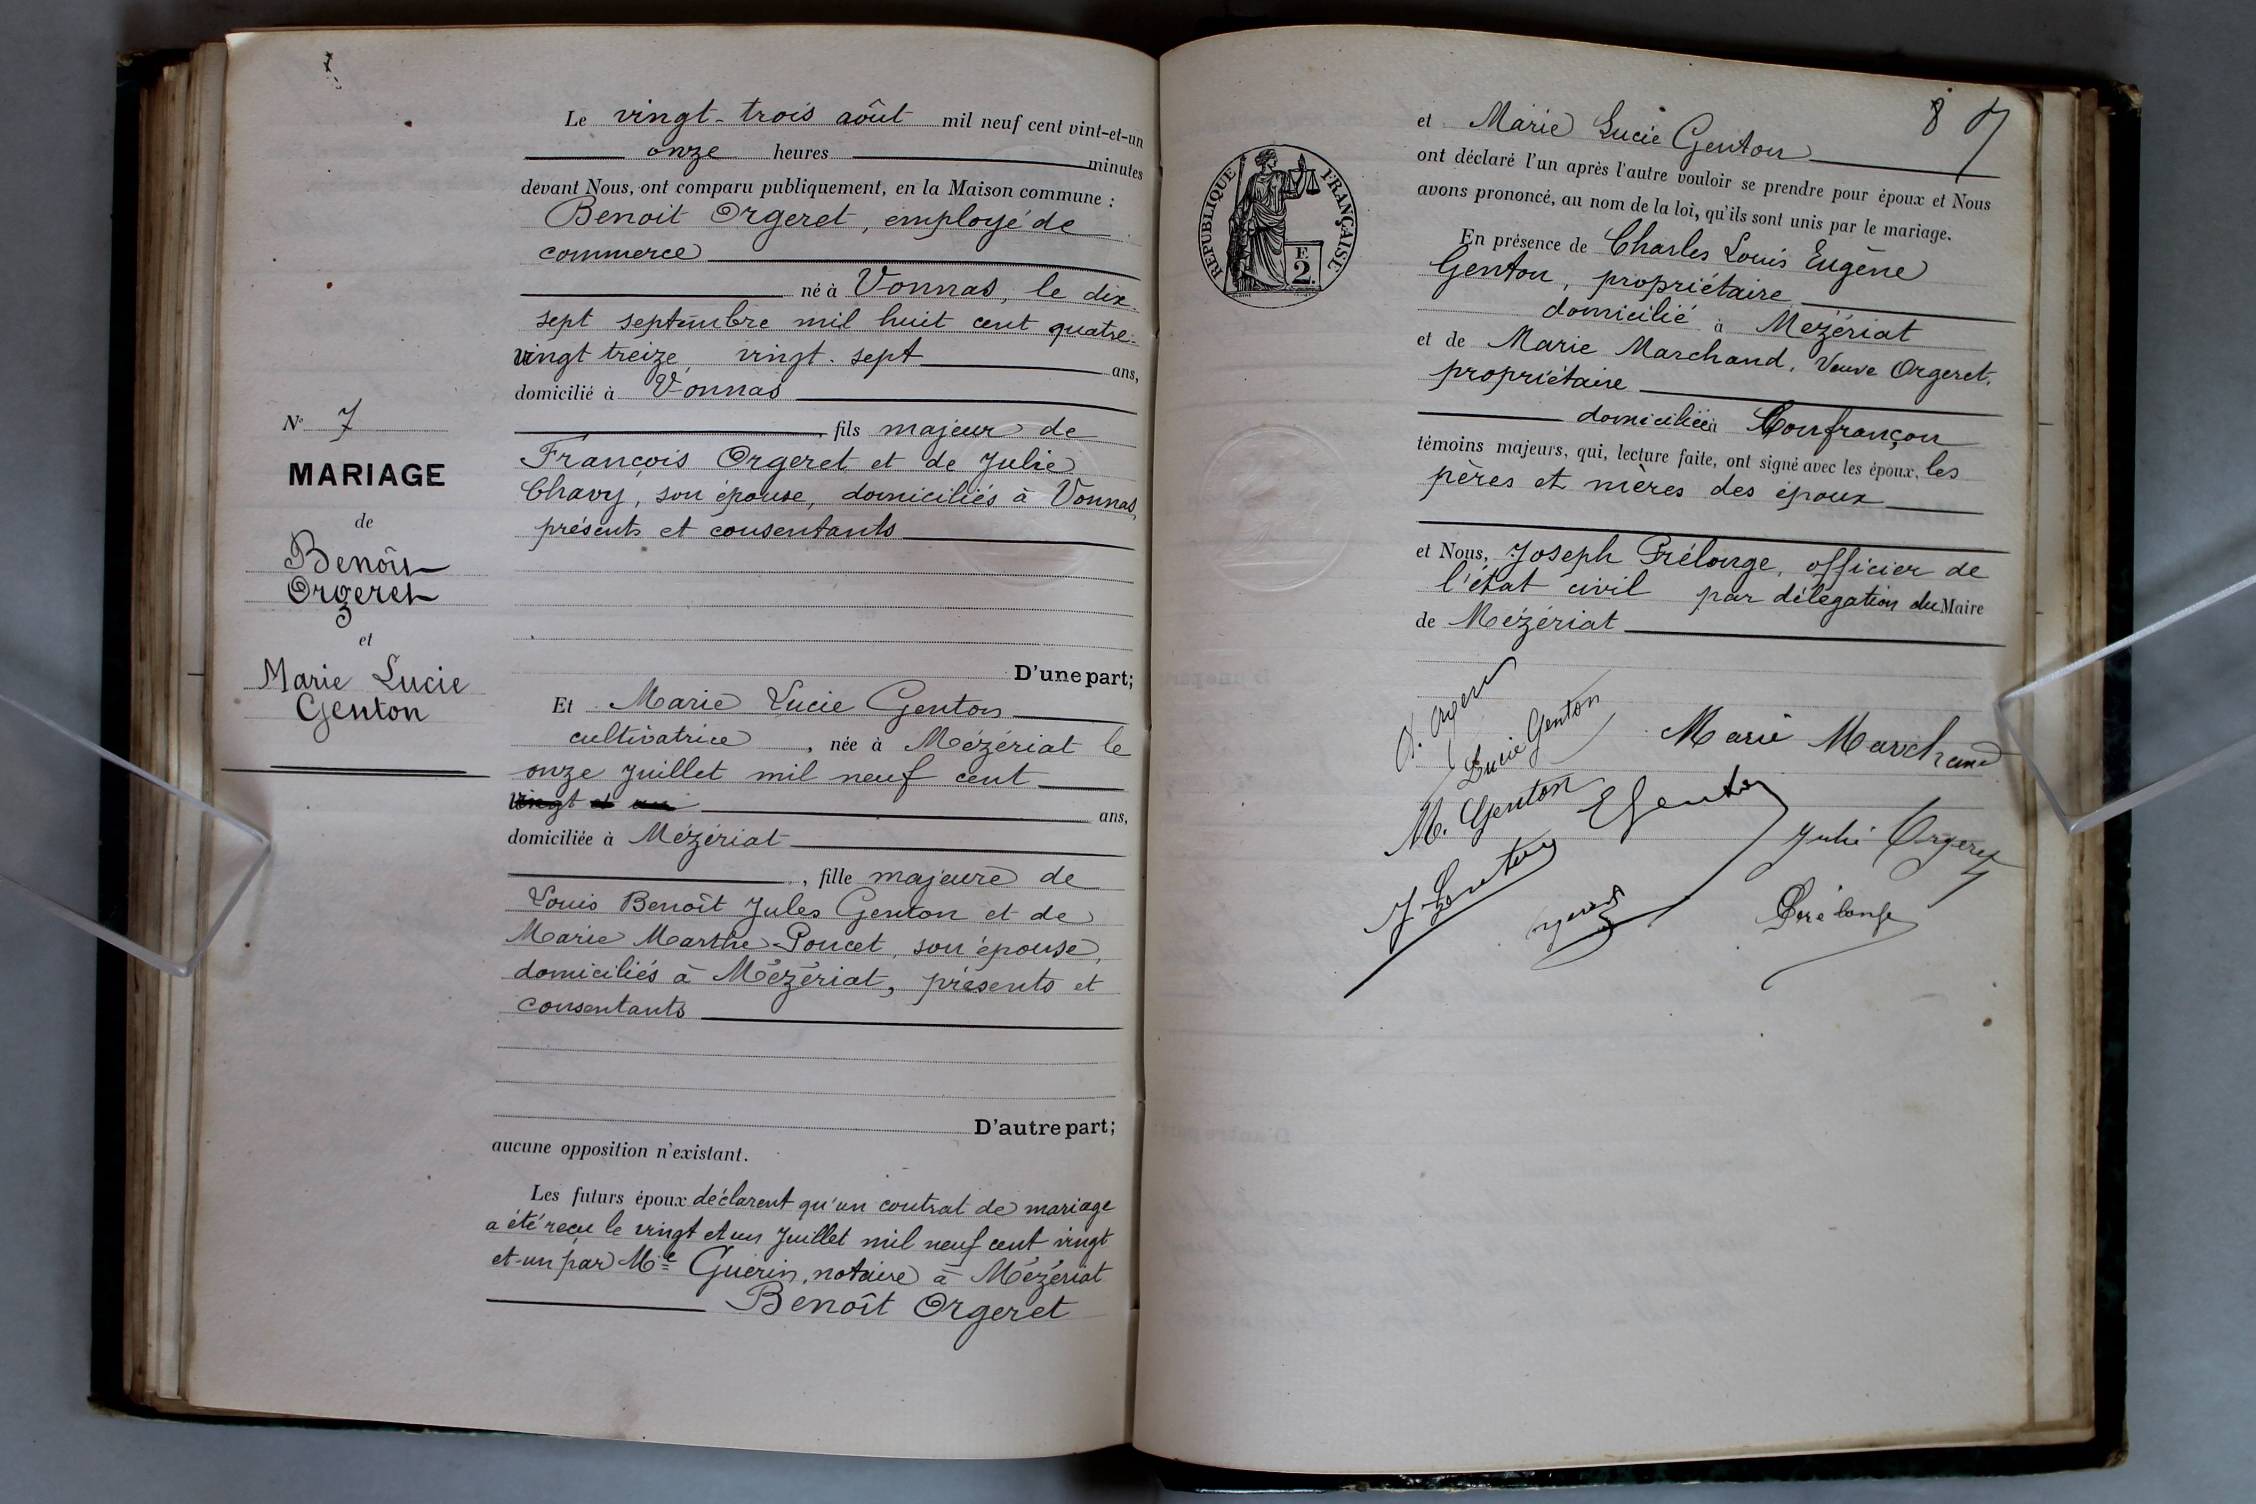 Le vingt-trois août mil neuf cent vint-et-un
onze heures minutes
devant Nous, ont comparu publiquement, en la Maison commune :
Benoit Orgeret, employé de
commerce
né à Vonnas, le dix-
sept septembre mil huit cent quatre-
vingt treize, vingt-sept ans,
domicilié à Vonnas
fils majeur de
François Orgeret et de Julie
Chavy, son épouse, domiciliés à Vonnas,
présents et consentants
D'une part;
N° 7
MARIAGE
de
Benoît
Orgeret
et
Marie Lucie
Genton
Et Marie Lucie Genton
cultivatrice, née à Mézériat le
onze Juillet mil neuf cent
vingt et un ans,
domiciliée à Mézériat
, fille majeure de
Louis Benoît Jules Genton et de
Marie Marthe Poncet, son épouse,
domiciliés à Mézériat, présents et
consentants
D'autre part;
aucune opposition n'existant.
Les futurs époux déclarent qu'un contrat de mariage
a été reçu le vingt et un Juillet mil neuf cent vingt
et-un par Me Guerin, notaire à Mézériat
Benoît Orgeret
8
et Marie Lucie Genton
ont déclaré l'un après l'autre vouloir se prendre pour époux et Nous
avons prononcé, au nom de la loi, qu'ils sont unis par le mariage.
RÉPUBLIQUE FRANÇAISE
F.
2.
En présence de Charles Louis Eugène
Genton, propriétaire
domicilié à Mézériat
et de Marie Marchand, Veuve Orgeret,
propriétaire
domiciliée à Confrançon
témoins majeurs, qui, lecture faite, ont signé avec les époux, les
pères et mères des époux
et Nous, Joseph Prélonge, officier de
l'état civil par délégation du Maire
de Mézériat
B. Orgeret
Lucie Genton
Marie Marchand
M. Genton
E Genton
Julie Orgeret
J. Genton
Prélonge